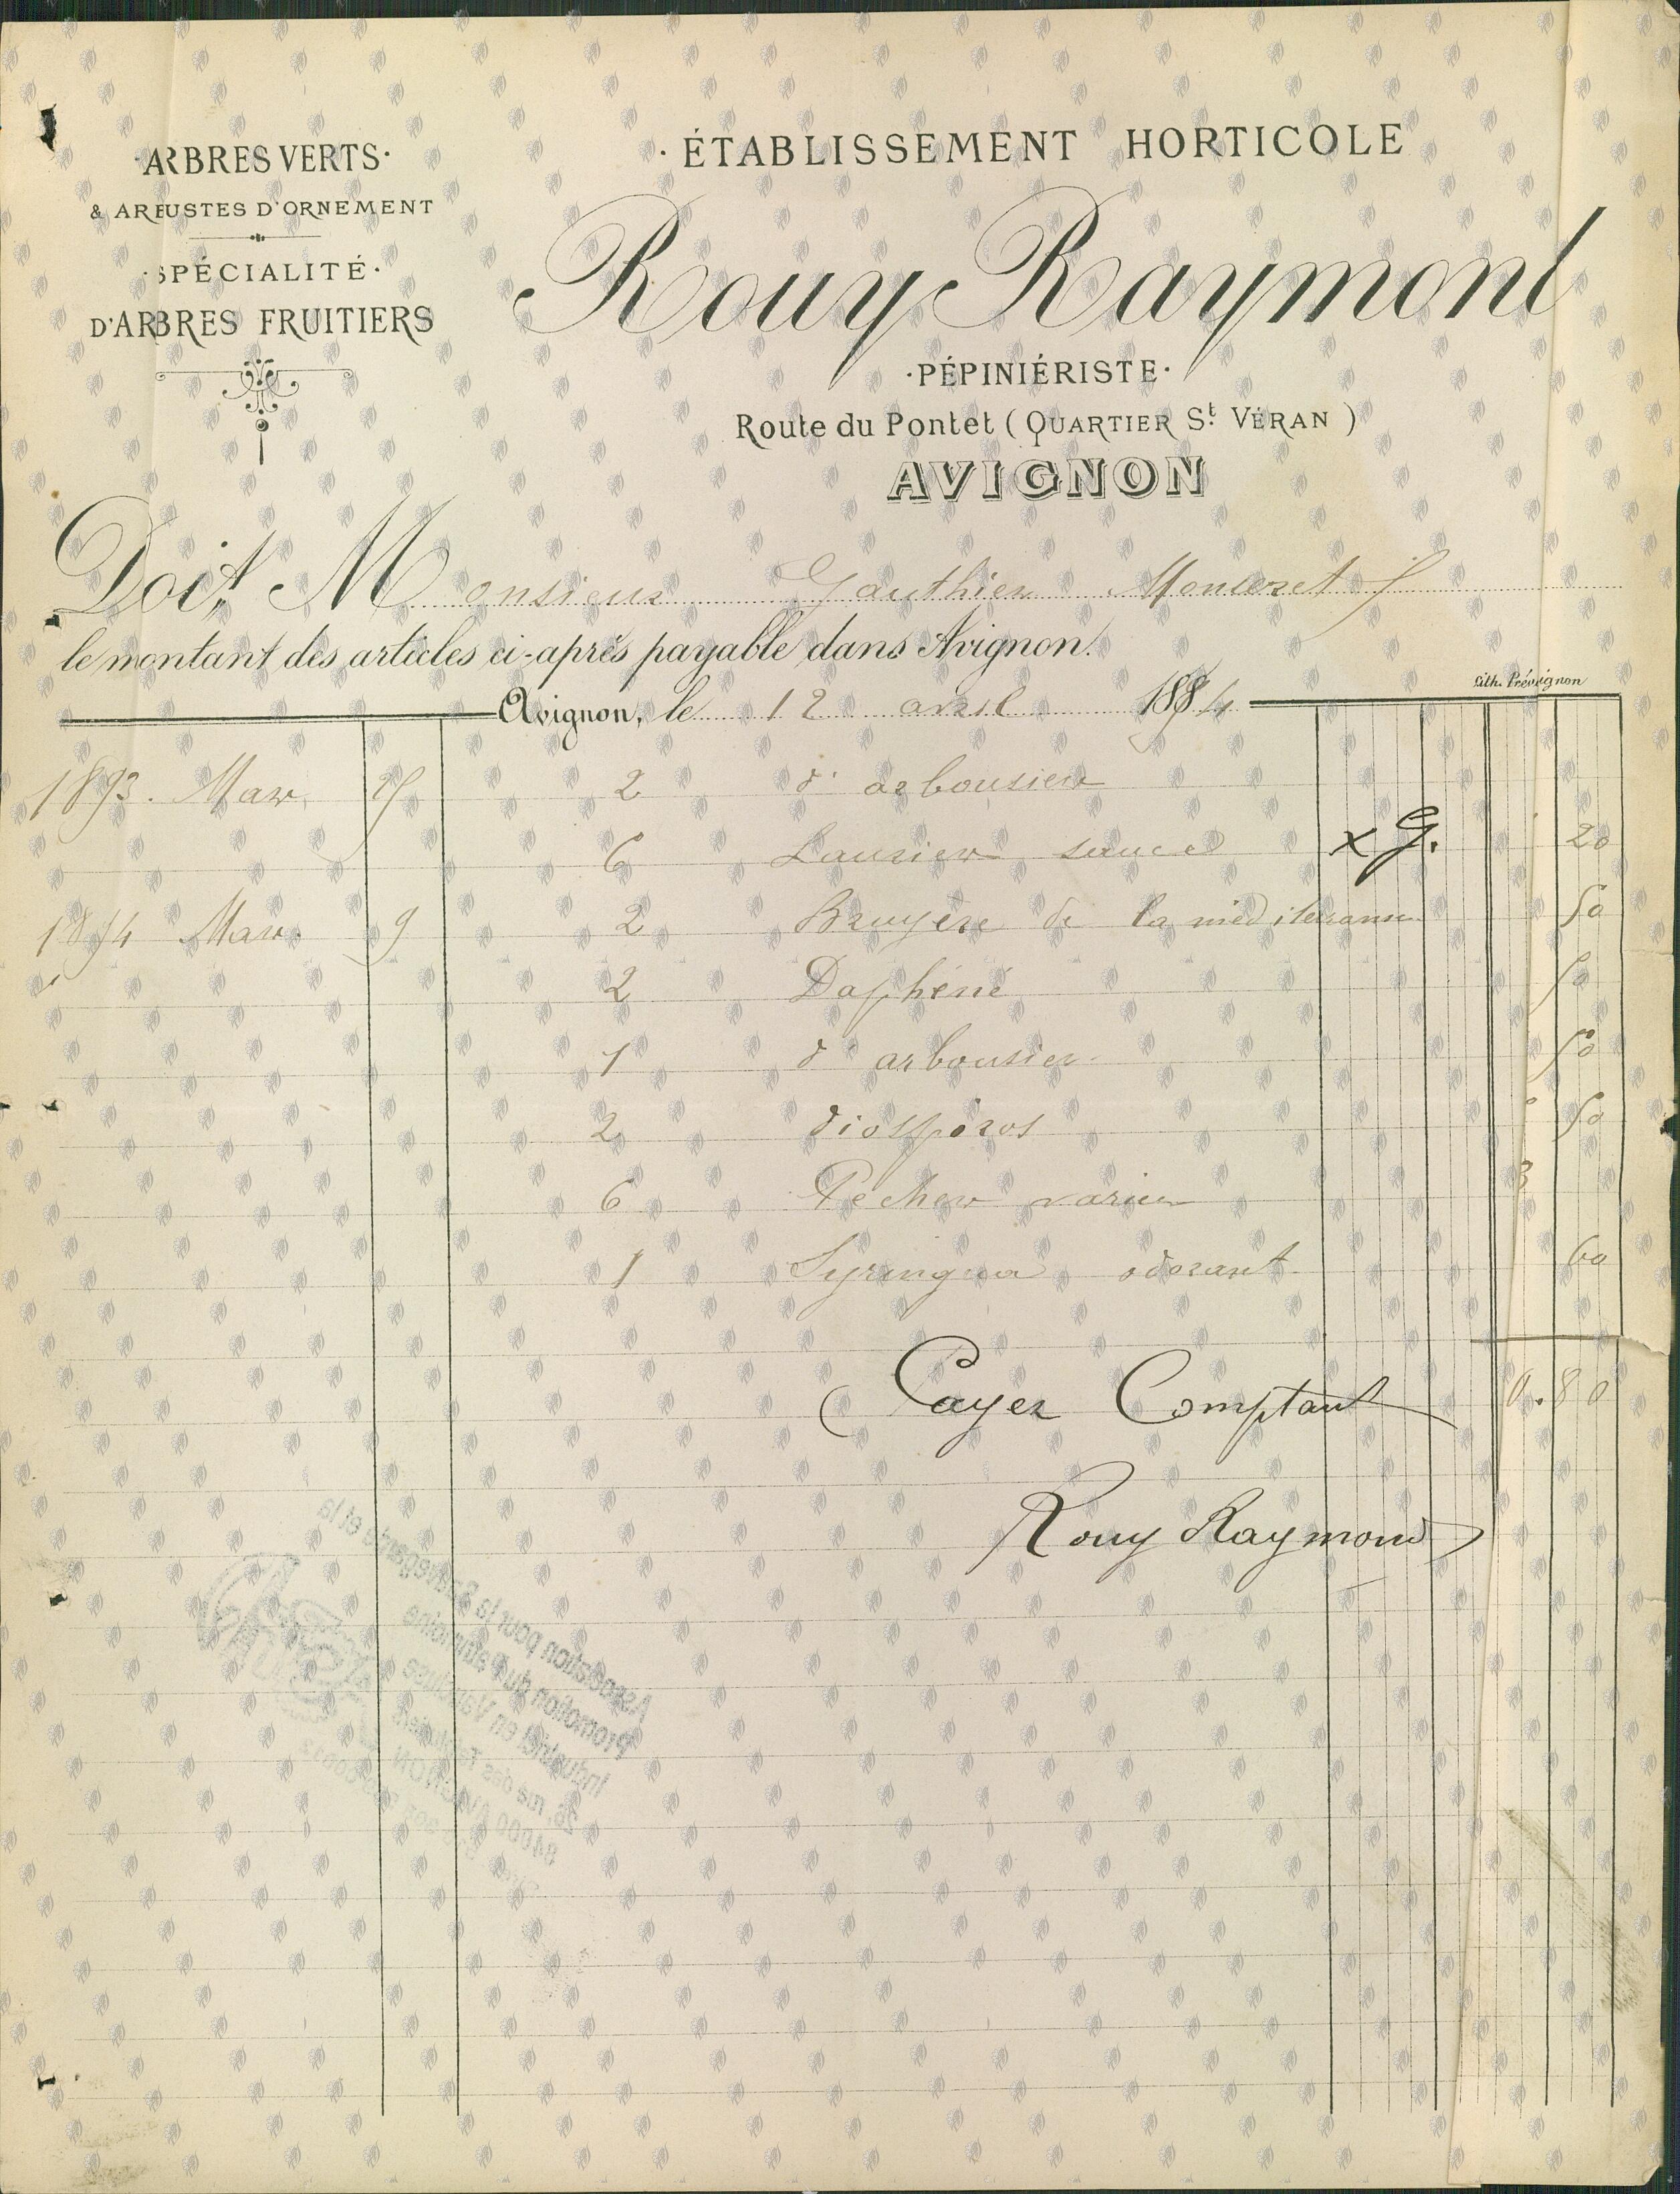 ·ARBRES VERTS·
& ARBUSTES D'ORNEMENT
·SPÉCIALITÉ·
D'ARBRES FRUITIERS
·ÉTABLISSEMENT HORTICOLE
Rouy Raymond
·PÉPINIÉRISTE·
Route du Pontet (QUARTIER St VÉRAN)
AVIGNON
Doit Monsieur Gauthier
le montant des articles ci-après payable dans Avignon.
Lith. Prévignon
Avignon, le 12 avril 1894
1893. Mar 25 2 d'arbousier
6 Laurier sauce x G. 20
1894 Mar. 9 2 Bruyère de la méditerranée 50
2 Daphéné 50
1 d'arbousier 50
2 diospiros 50
6 Pecher varier 3
1 Syringua odorant 60
Payer Comptant .80
Rouy Raymond
Association pour la Sauvegarde et la
Promotion du Patrimoine
Industriel en Vaucluse
26, rue des Teinturiers
84000 AVIGNON